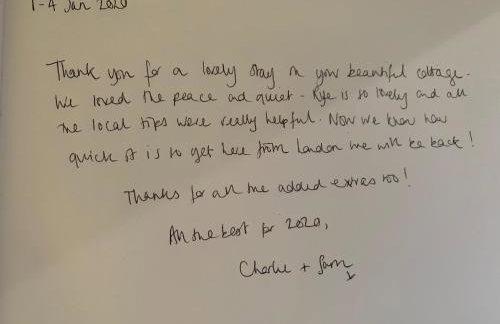 1-4 Jan 2020
Thank you for a lovely stay in your beautiful cottage.
We loved the peace and quiet - is so lovely and all
the local tips were really helpful. Now we know how
quick it is to get here from London we will be back!
Thanks for all the added extras too!
All the best for 2020,
Charlie + Sam
x